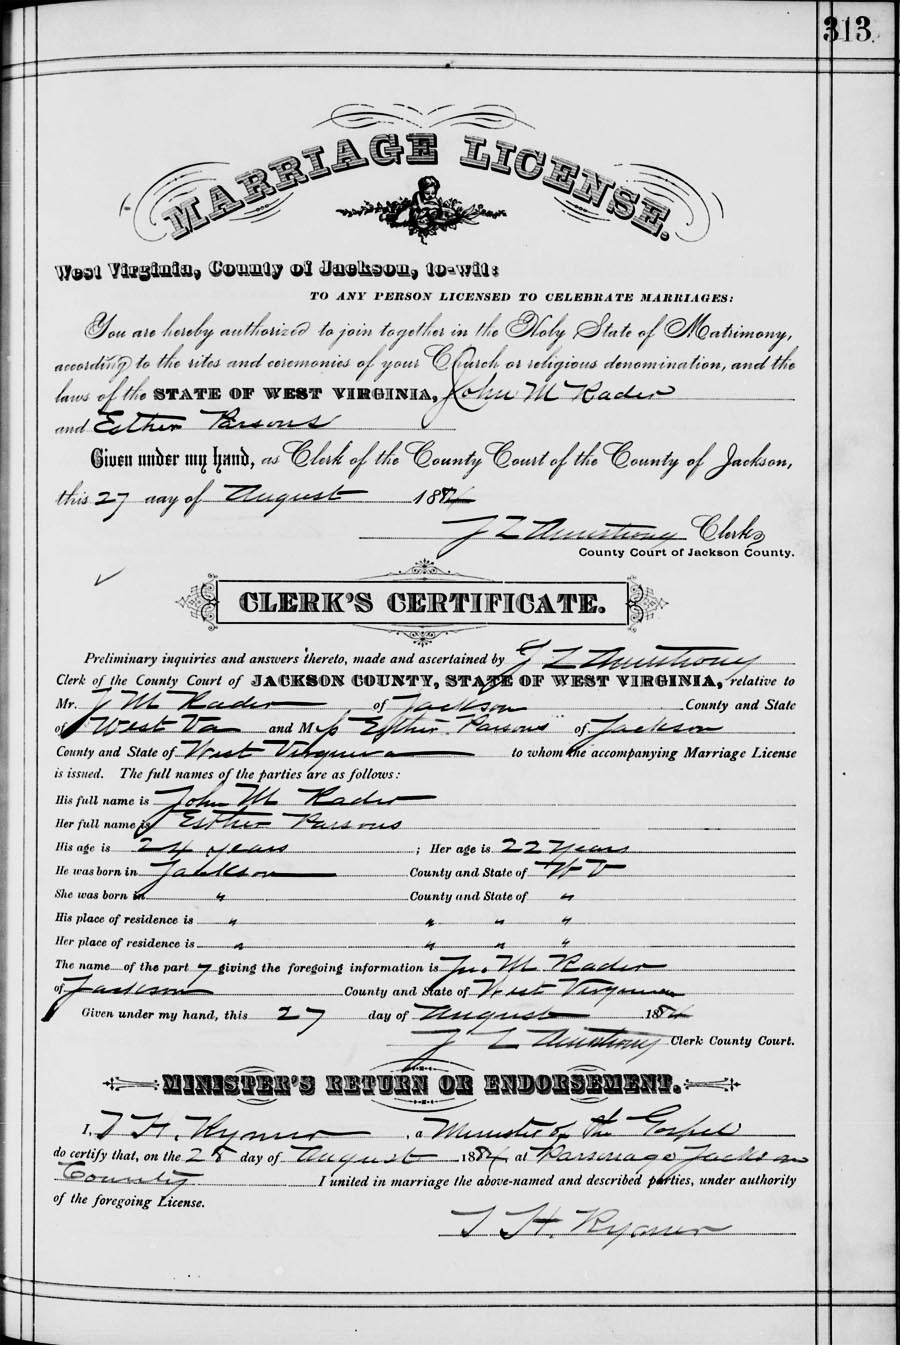 313
MARRIAGE LICENSE.
West Virginia, County of Jackson, to-wit:
TO ANY PERSON LICENSED TO CELEBRATE MARRIAGES:
You are hereby authorized to join together in the Holy State of Matrimony,
according to the rites and ceremonies of your Church or religious denomination, and the
laws of the STATE OF WEST VIRGINIA, John M Rader
and Esther Parsons
Given under my hand, as Clerk of the County Court of the County of Jackson,
this 27 day of August 1884
J L Armstrong Clerk
County Court of Jackson County.
CLERK'S CERTIFICATE.
Preliminary inquiries and answers thereto, made and ascertained by J L Armstrong
Clerk of the County Court of JACKSON COUNTY, STATE OF WEST VIRGINIA, relative to
Mr. J M Rader of Jackson County and State
of West Va and Miss Esther Parsons of Jackson
County and State of West Virginia to whom the accompanying Marriage License
is issued. The full names of the parties are as follows:
His full name is John M Rader
Her full name is Esther Parsons
His age is 24 years ; Her age is 22 Years
He was born in Jackson County and State of W V
She was born in " County and State of "
His place of residence is " " " "
Her place of residence is " " " "
The name of the part y giving the foregoing information is Jno. M Rader
of Jackson County and State of West Virginia
Given under my hand, this 27 day of August 1884
J L Armstrong Clerk County Court.
MINISTER'S RETURN OR ENDORSEMENT.
I, T H. Rymer, a Minister of the Gospel
do certify that, on the 28 day of August 1884 at Parsonage Jackson
County I united in marriage the above-named and described parties, under authority
of the foregoing License.
T H. Rymer